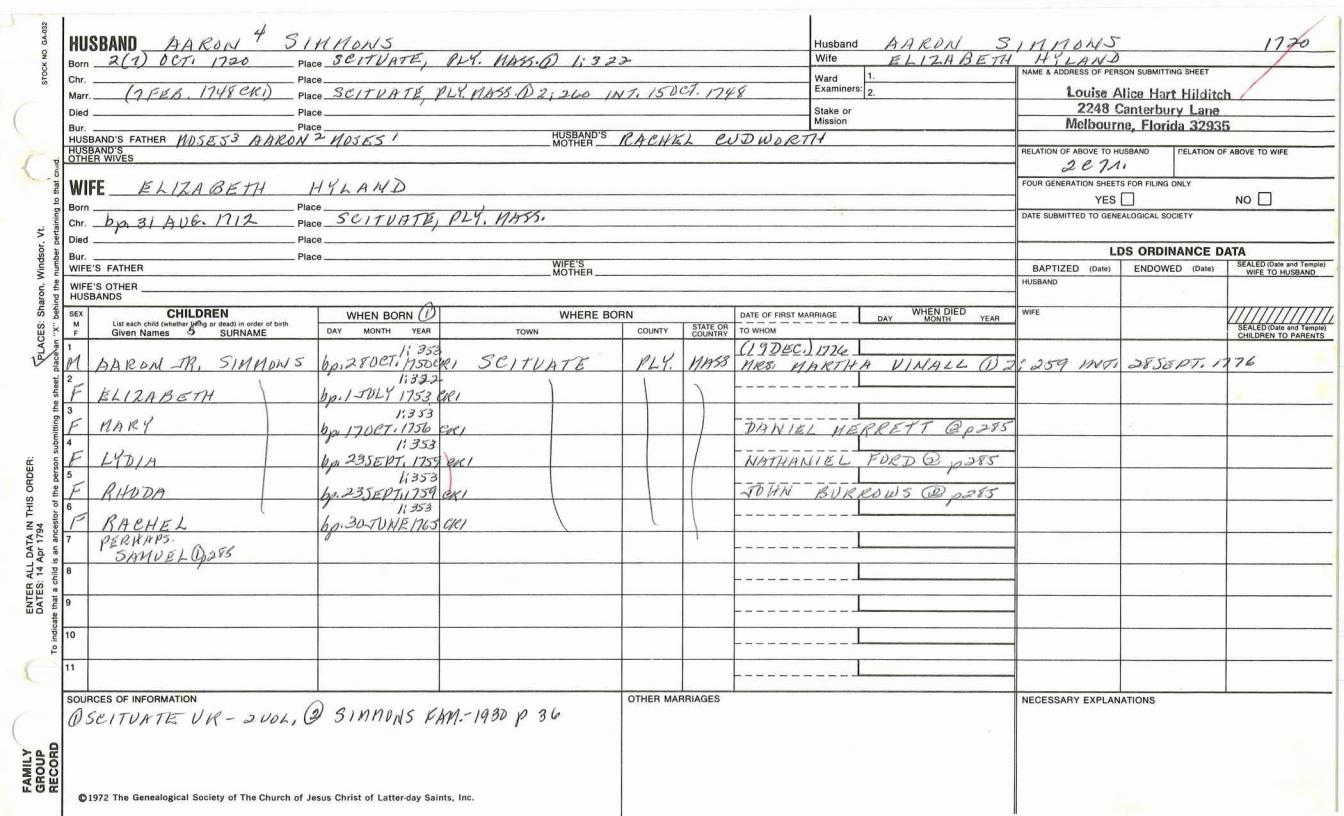 STOCK NO. GA-032
HUSBAND AARON 4 SIMMONS
Born 2(?) OCT. 1720 Place SCITUATE, PLY. MASS. ① 1:322
Chr. Place
Marr. (7 FEB. 1748 CR1) Place SCITUATE, PLY. MASS. ① 2:260 INT. 15 OCT. 1748
Died Place
Bur. Place
HUSBAND'S FATHER MOSES 3 AARON 2 MOSES 1 HUSBAND'S MOTHER RACHEL CUDWORTH
HUSBAND'S OTHER WIVES
WIFE ELIZABETH HYLAND
Born Place
Chr. bp. 31 AUG. 1712 Place SCITUATE, PLY. MASS.
Died Place
Bur. Place
WIFE'S FATHER WIFE'S MOTHER
WIFE'S OTHER HUSBANDS
Husband AARON SIMMONS 1720
Wife ELIZABETH HYLAND
Ward 1.
Examiners: 2.
Stake or Mission
NAME & ADDRESS OF PERSON SUBMITTING SHEET
Louise Alice Hart Hilditch
2248 Canterbury Lane
Melbourne, Florida 32935
RELATION OF ABOVE TO HUSBAND RELATION OF ABOVE TO WIFE
FOUR GENERATION SHEETS FOR FILING ONLY
YES NO
DATE SUBMITTED TO GENEALOGICAL SOCIETY
LDS ORDINANCE DATA
BAPTIZED (Date) ENDOWED (Date) SEALED (Date and Temple) WIFE TO HUSBAND
HUSBAND
WIFE
SEALED (Date and Temple) CHILDREN TO PARENTS
SEX M F
CHILDREN
List each child (whether living or dead) in order of birth
Given Names 5 SURNAME
WHEN BORN ①
DAY MONTH YEAR
WHERE BORN
TOWN COUNTY STATE OR COUNTRY
DATE OF FIRST MARRIAGE
TO WHOM
WHEN DIED
DAY MONTH YEAR
1 1:353 (19 DEC.) 1776
M AARON JR. SIMMONS bp. 28 OCT. 1750 CR1 SCITUATE PLY. MASS MRS. MARTHA VINALL ① 2:259 INT. 28 SEPT. 1776
2 1:322
F ELIZABETH bp. 1 JULY 1753 CR1
3 1:353
F MARY bp. 17 OCT. 1756 CR1 DANIEL MERRETT ② p285
4 1:353
F LYDIA bp. 23 SEPT. 1759 CR1 NATHANIEL FORD ② p285
5 1:353
F RHODA bp. 23 SEPT. 1759 CR1 JOHN BURROWS ② p285
6 1:353
F RACHEL bp. 30 JUNE 1765 CR1
7 PERHAPS.
SAMUEL ① p285
8
9
10
11
SOURCES OF INFORMATION
① SCITUATE VR - 2 VOL, ② SIMMONS FAM. - 1930 p 36
OTHER MARRIAGES
NECESSARY EXPLANATIONS
©1972 The Genealogical Society of The Church of Jesus Christ of Latter-day Saints, Inc.
FAMILY GROUP RECORD
ENTER ALL DATA IN THIS ORDER:
DATES: 14 Apr 1794
PLACES: Sharon, Windsor, Vt.
To indicate that a child is an ancestor of the person submitting the sheet, place an "X" behind the number pertaining to that child.